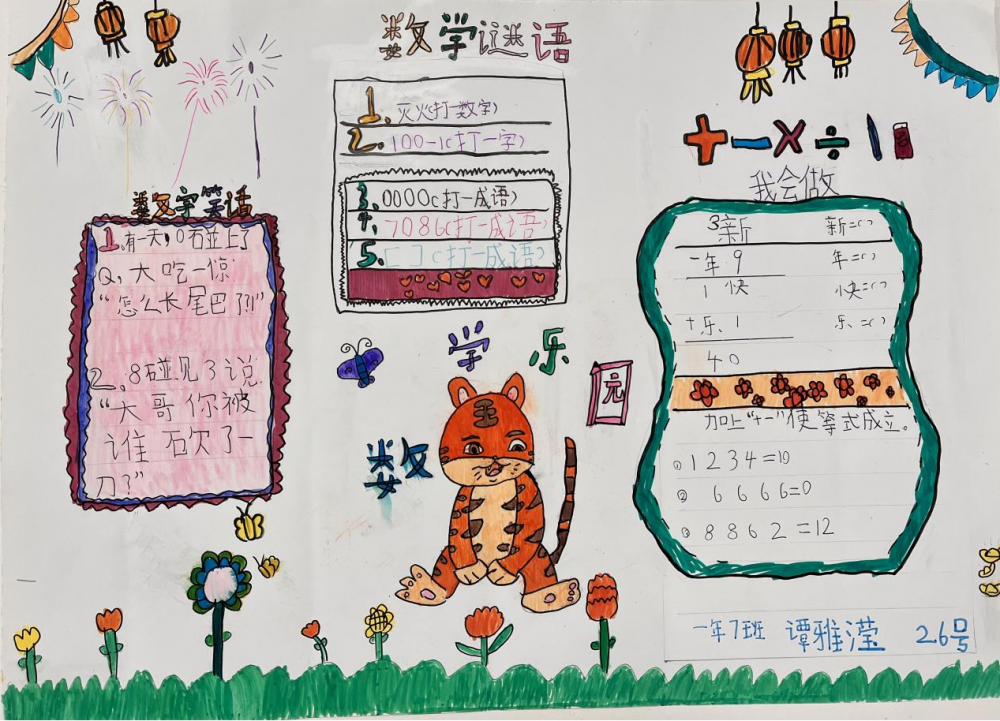 数学谜语
1.灭火(打一数字)
2.100-1(打一字)
3.0000(打一成语)
4.7086(打一成语)
5.(打一成语)
数字笑话
1.有一天,0碰上了
Q,大吃一惊
“怎么长尾巴了!!”
2.8碰见3说
“大哥你被
谁砍了一
刀?”
数学乐园
+-×÷
我会做
3新 新=()
一年9 年=()
1快 快=()
+乐1 乐=()
40
加上“+-”使等式成立。
①1 2 3 4=10
②6 6 6 6=0
③8 8 6 2=12
一年7班 谭雅滢 26号